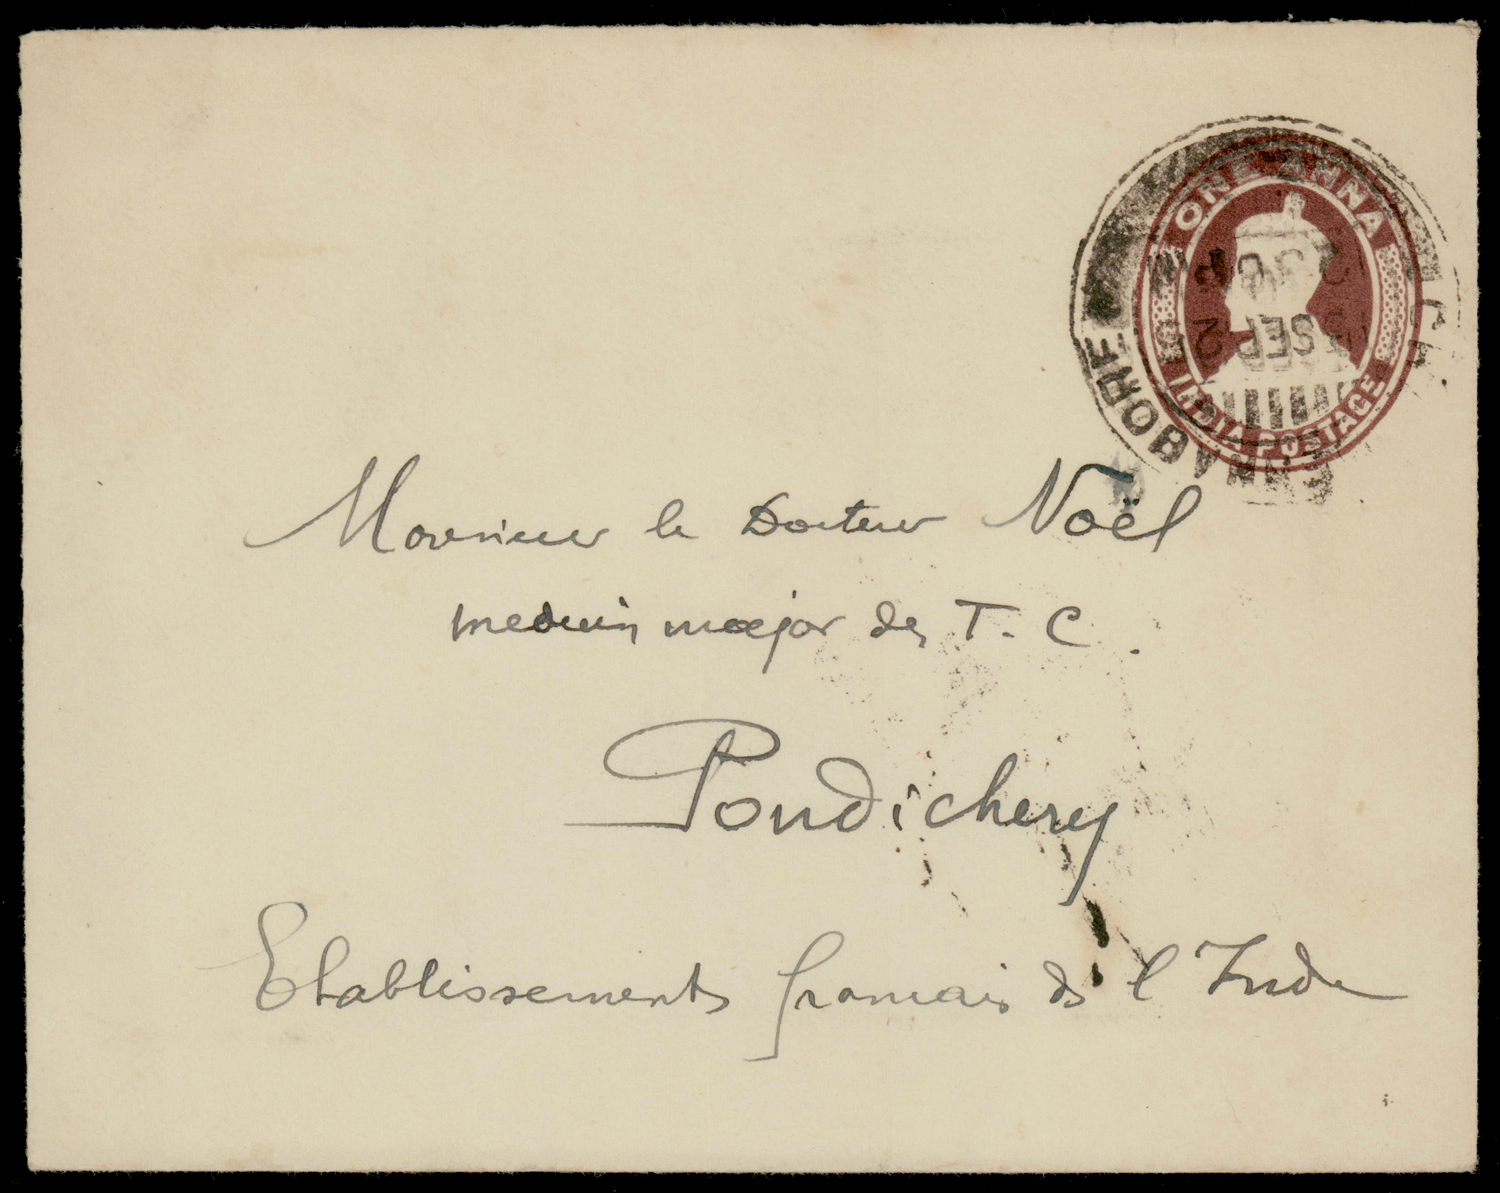 ONE ANNA
INDIA POSTAGE
SEP
Monsieur le Docteur Noël
medecin major des T. C.
Pondichery
Etablissements français de l'Inde